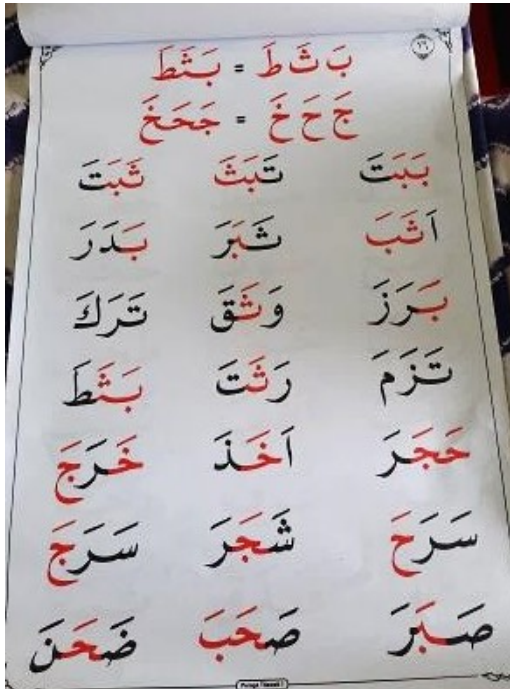 ١٦
بَ ثَ طَ = بَثَطَ
جَ حَ خَ = جَحَخَ
بَبَتَ تَبَثَ ثَبَتَ
اَثَبَ ثَبَرَ بَدَرَ
بَرَزَ وَثَقَ تَرَكَ
تَزَمَ رَثَتَ بَثَطَ
حَجَرَ اَخَذَ خَرَجَ
سَرَحَ شَجَرَ سَرَجَ
صَبَرَ صَحَبَ ضَحَنَ